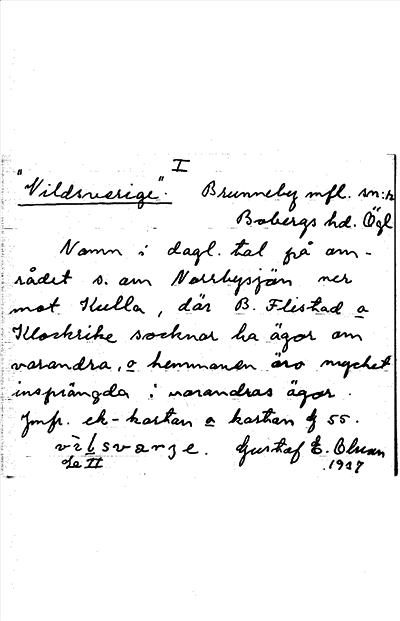 I
"Vildsverige". Brunneby mfl. sn:r
Bobergs hd. Ögl
Namn i dagl. tal på om-
rådet s. om Norrbysjön ner
mot Kulla, där B. Flistad o
Klockrike socknar ha ägor om
varandra, o hemmanen äro mycket
insprängda i varandras ägor.
Jmfr. ek-kartan o kartan 55.
Gustaf E. Olsson
Se II 1937